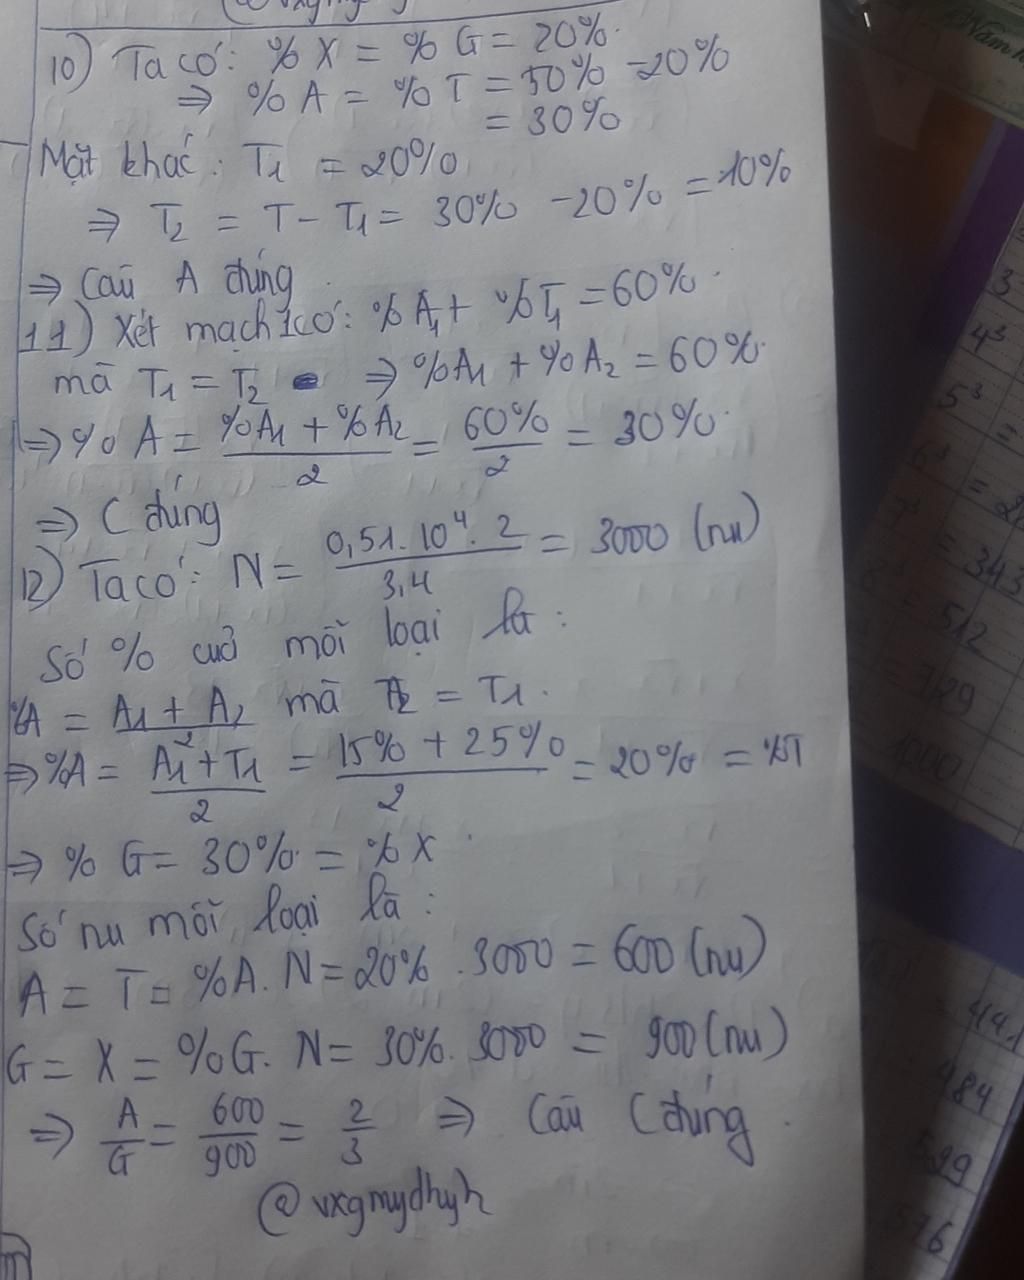 @vxgmy
10) Ta có: % X = % G = 20%.
⇒ % A = % T = 50% - 20%
= 30%
Mặt khác: T1 = 20%
⇒ T2 = T - T1 = 30% - 20% = 10%
⇒ Câu A đúng
11) Xét mạch 1 có: % A1 + % T1 = 60%.
mà T1 = T2 ⇒ %A1 + %A2 = 60%
⇒ % A = (%A1 + %A2)/2 = 60%/2 = 30%
⇒ C đúng
12) Ta có: N = (0,51.10⁴.2)/3,4 = 3000 (nu)
Số % cuả mỗi loại là:
%A = (A1 + A2)/2 mà A2 = T1.
⇒ %A = (A1 + T1)/2 = (15% + 25%)/2 = 20% = %T
⇒ % G = 30% = % X
Số nu mỗi loại là:
A = T = %A. N = 20% . 3000 = 600 (nu)
G = X = %G. N = 30%. 3000 = 900 (nu)
⇒ A/G = 600/900 = 2/3 ⇒ Câu C đúng.
@vxgmydhyh
Năm
3
4³
5³
=
6³
=
7³ = 343
8³ = 512
= 729
1000
= 441
484
529
576